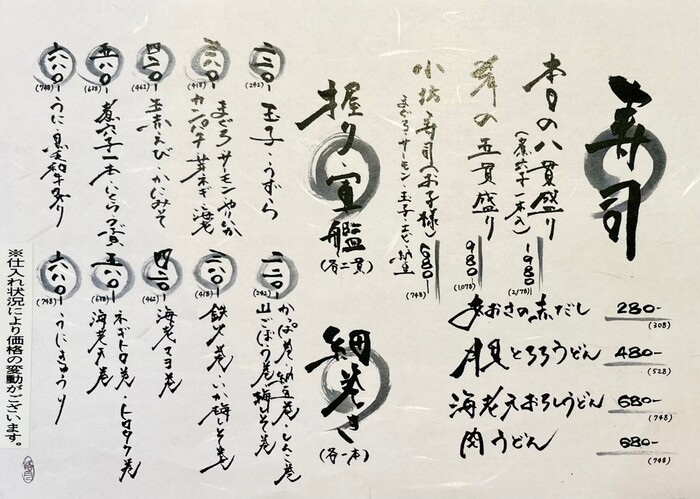 寿司
本日の八貫盛り 1980-
(煮穴子一本入) (2178)
岸の五貫盛り 980-
(1078)
小坊寿司(お子様) 680-
まぐろ・サーモン・玉子・えび・納豆 (748)
あおさの赤だし 280-
(308)
月見とろろうどん 480-
(528)
海老天おろしうどん 680-
(748)
肉うどん 680-
(748)
握り・軍艦
(各二貫)
二二〇- 玉子・うずら
(242)
三八〇- まぐろ サーモン やりいか
(418) カンパチ 芽ネギ 海老
四二〇- 生赤えび・かにみそ
(462)
五八〇- 煮穴子一本・いくら
(638)
六八〇- うに・黒毛和牛炙り
(748)
細巻き
(各一本)
二二〇- かっぱ巻・納豆巻・しんこ巻
(242) 山ごぼう巻・梅しそ巻
三八〇- 鉄火巻・いか梅しそ巻
(418)
四二〇- 海老マヨ巻
(462)
五八〇- ネギトロ巻・トロタク巻
(638) 海老天巻
六八〇- うにきゅうり
(748)
※仕入れ状況により価格の変動がございます。